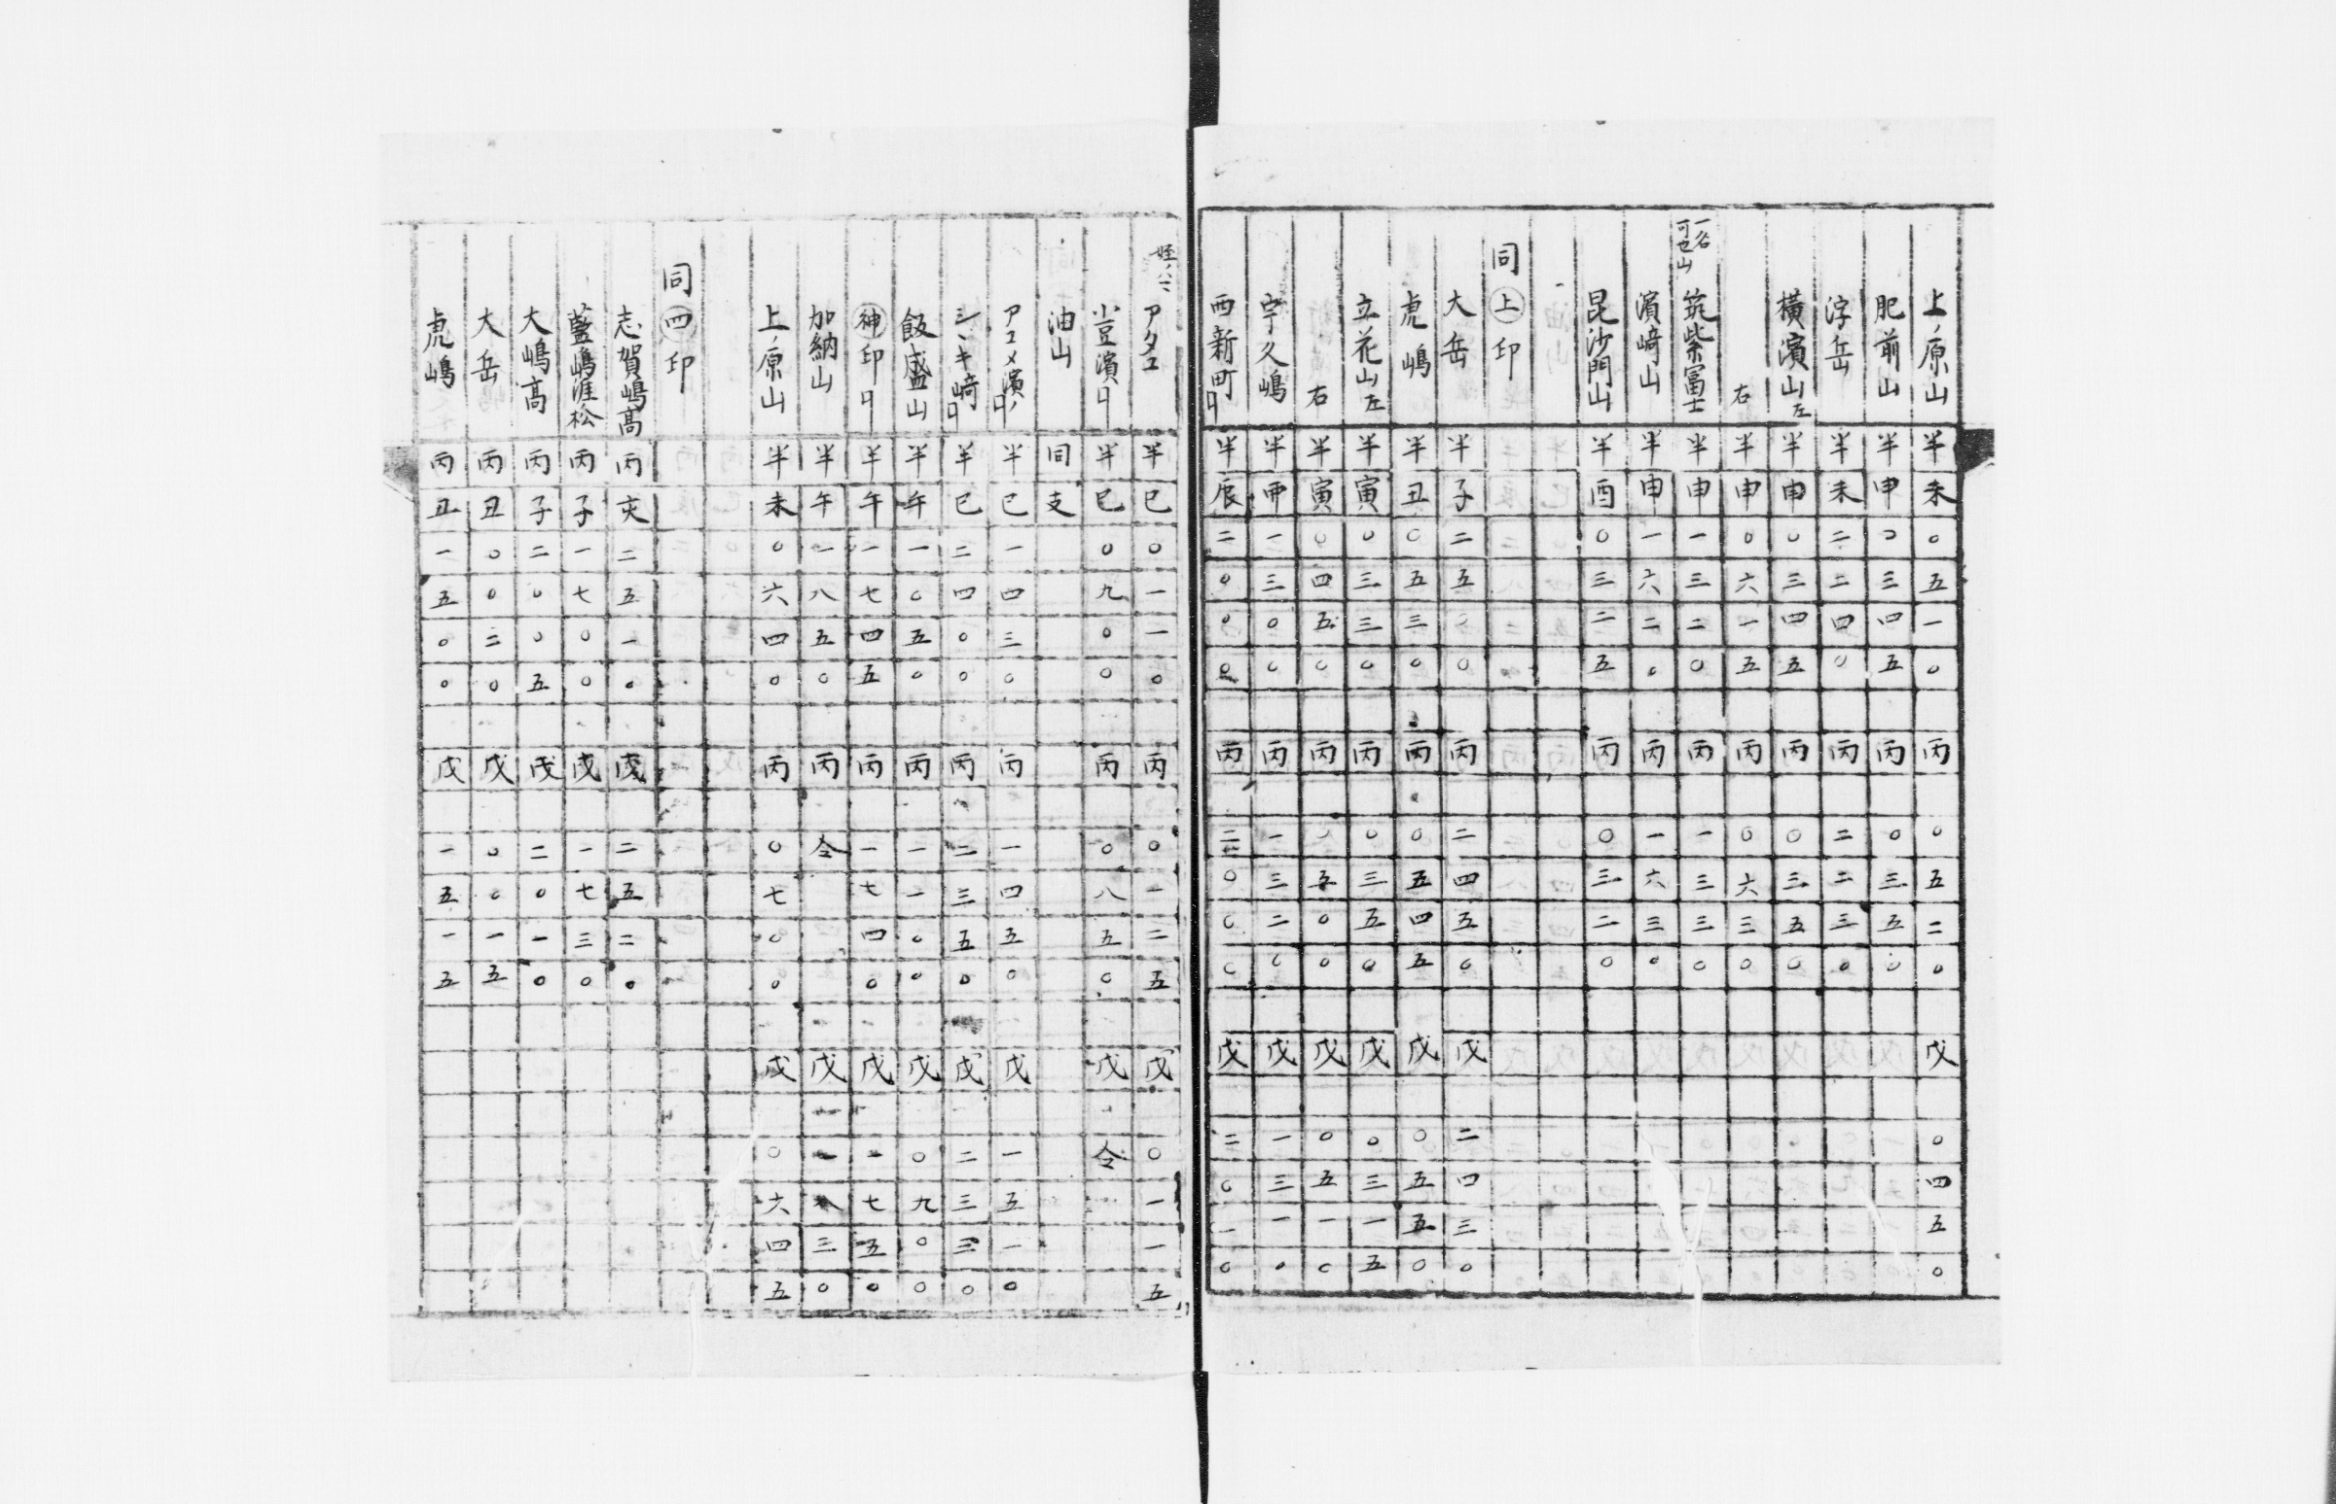 上ノ原山 半 未 〇 五 一 〇 丙 〇 五 二 〇 戊 〇 四 五 〇
肥前山 半 申 〇 三 四 五 丙 〇 三 五 〇
浮岳 半 未 二 二 四 〇 丙 二 二 三 〇
横濱山左 半 申 〇 三 四 五 丙 〇 三 五 〇
右 半 申 〇 六 一 五 丙 〇 六 三 〇
一名可也山 筑紫冨士 半 申 一 三 二 〇 丙 一 三 三 〇
濱﨑山 半 申 一 六 二 〇 丙 一 六 三 〇
昆沙門山 半 酉 〇 三 二 五 丙 〇 三 二 〇
同㊤印
大岳 半 子 二 五 〇 〇 丙 二 四 五 〇 戊 二 四 三 〇
虎嶋 半 丑 〇 五 三 〇 丙 〇 五 四 五 戊 〇 五 五 〇
立花山左 半 寅 〇 三 三 〇 丙 〇 三 五 〇 戊 〇 三 一 五
右 半 寅 〇 四 五 〇 丙 〇 五 〇 〇 戊 〇 五 一 〇
宇久嶋 半 一 三 〇 〇 丙 一 三 二 〇 戊 一 三 一 〇
西新町口 半 辰 二 〇 〇 〇 丙 二 〇 〇 〇 戊 二 〇 一 〇
姪ノハマ アタコ 半 巳 〇 一 一 〇 丙 〇 一 二 五 戊 〇 一 一 五
小豆濱口 半 巳 〇 九 〇 〇 丙 〇 八 五 〇 戊 令
油山 同 支
アコメ濱ノ口 半 巳 一 四 三 〇 丙 一 四 五 〇 戊 一 五 一 〇
シヽキ﨑口 半 巳 二 四 〇 〇 丙 二 三 五 〇 戊 二 三 三 〇
飯盛山 半 午 一 〇 五 〇 丙 一 一 〇 〇 戊 〇 九 〇 〇
神印口 半 午 一 七 四 五 丙 一 七 四 〇 戊 一 七 五 〇
加納山 半 午 一 八 五 〇 丙 令 戊 一 八 三 〇
上ノ原山 半 未 〇 六 四 〇 丙 〇 七 〇 〇 戊 〇 六 四 五
同㊃印
志賀嶋高 丙 亥 二 五 一 〇 戊 二 五 二 〇
藍嶋涯松 丙 子 一 七 〇 〇 戊 一 七 三 〇
大嶋高 丙 子 二 〇 〇 五 戊 二 〇 一 〇
大岳 丙 丑 〇 〇 二 〇 戊 〇 〇 一 五
虎嶋 丙 丑 一 五 〇 〇 戊 一 五 一 五